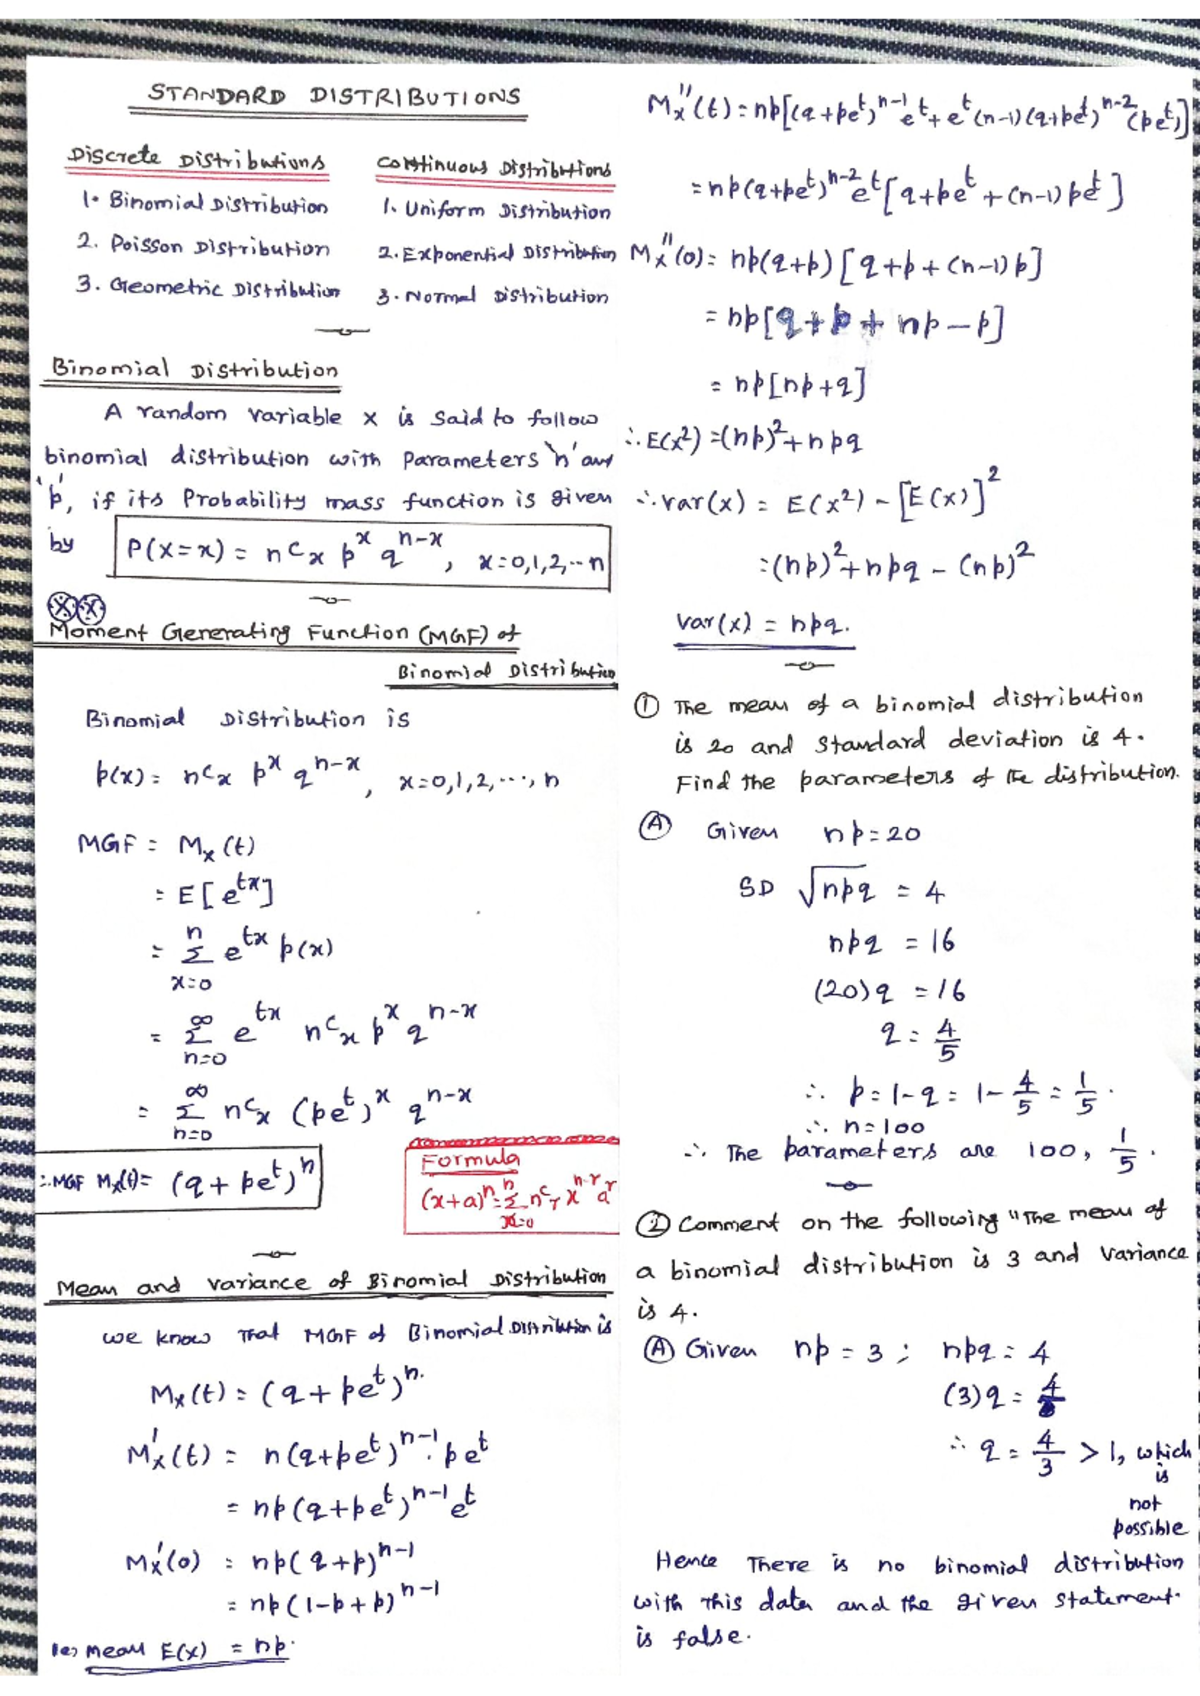 STANDARD DISTRIBUTIONS
Discrete Distributions
1. Binomial Distribution
2. Poisson Distribution
3. Geometric Distribution
Continuous Distributions
1. Uniform Distribution
2. Exponential Distribution
3. Normal Distribution
Binomial Distribution
A random variable X is said to follow
binomial distribution with parameters 'n' and
'p', if its Probability mass function is given
by P(X=x) = nCx p^x q^(n-x), x=0,1,2,..n
Moment Generating Function (MGF) of
Binomial Distribution
Binomial Distribution is
p(x) = nCx p^x q^(n-x), x=0,1,2,...,n
MGF = Mx(t)
= E[e^(tx)]
= Σ_(x=0)^n e^(tx) p(x)
= Σ_(n=0)^∞ e^(tx) nCx p^x q^(n-x)
= Σ_(n=0)^∞ nCx (pe^t)^x q^(n-x)
∴ MGF Mx(t) = (q + pe^t)^n
Formula
(x+a)^n = Σ_(x=0)^n nCr x^(n-r) a^r
Mean and Variance of Binomial Distribution
We know that MGF of Binomial Distribution is
Mx(t) = (q + pe^t)^n.
Mx'(t) = n(q+pe^t)^(n-1) . pe^t
= np(q+pe^t)^(n-1) e^t
Mx'(0) = np(q+p)^(n-1)
= np(1-p+p)^(n-1)
(ie) mean E(x) = np.
Mx''(t) = np[(q+pe^t)^(n-1) e^t + e^t (n-1)(q+pe^t)^(n-2) (pe^t)]
= np(q+pe^t)^(n-2) e^t [q+pe^t + (n-1)pe^t]
Mx''(0) = np(q+p)[q+p+(n-1)p]
= np[q+p+np-p]
= np[np+q]
∴ E(x²) = (np)²+npq
∴ var(x) = E(x²) - [E(x)]²
= (np)²+npq - (np)²
var(x) = npq.
① The mean of a binomial distribution
is 20 and standard deviation is 4.
Find the parameters of the distribution.
Ⓐ Given np = 20
SD √npq = 4
npq = 16
(20)q = 16
q = 4/5
∴ p = 1-q = 1 - 4/5 = 1/5.
∴ n = 100
∴ The parameters are 100, 1/5.
② Comment on the following "The mean of
a binomial distribution is 3 and variance
is 4.
Ⓐ Given np = 3 ; npq = 4
(3)q = 4
∴ q = 4/3 > 1, which
is
not
possible
Hence There is no binomial distribution
with this data and the given statement.
is false.